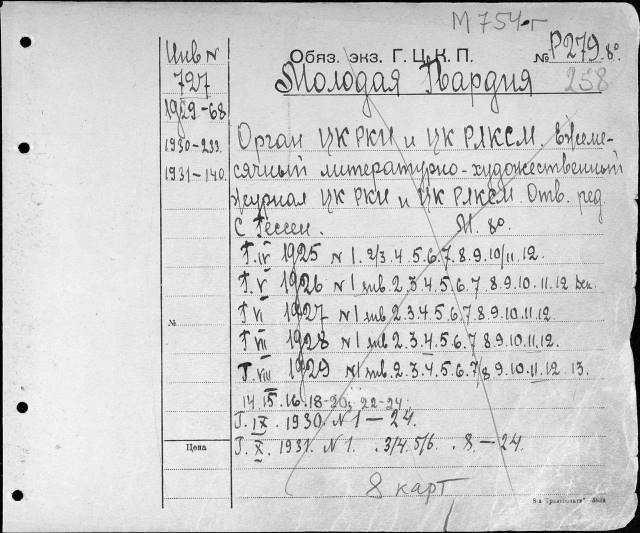 М 754-г
Инв N
Обяз. экз. Г. Ц. К. П.
№ Р279. 8°
727
Молодая Гвардия
258
1929-68
1930-233.
1931-140.
Орган ЦК РКП и ЦК РЛКСМ. Ежеме-
сячный литературно-художественный
журнал ЦК РКП и ЦК РЛКСМ. Отв. ред.
С Гессен. М. 8°.
Г. IV 1925 N 1. 2/3. 4. 5. 6. 7. 8. 9. 10/11. 12.
Г. V 1926 N 1 янв. 2. 3. 4. 5. 6. 7 8. 9. 10. 11. 12 дек.
Г VI 1927 N 1 янв. 2. 3. 4. 5. 6. 7 8. 9. 10. 11. 12.
№
Г. VII 1928 N 1 янв. 2. 3. 4. 5. 6. 7. 8. 9. 10. 11. 12.
Г. VIII 1929 N 1 янв. 2. 3. 4. 5. 6. 7/8 9. 10. 11. 12. 13.
14 15. 16. 18-20; 22-24.
Г. IX. 1930. N 1 — 24.
Цена
Г. X. 1931. N 1. . 3/4. 5/6. . 8. — 24.
8 карт